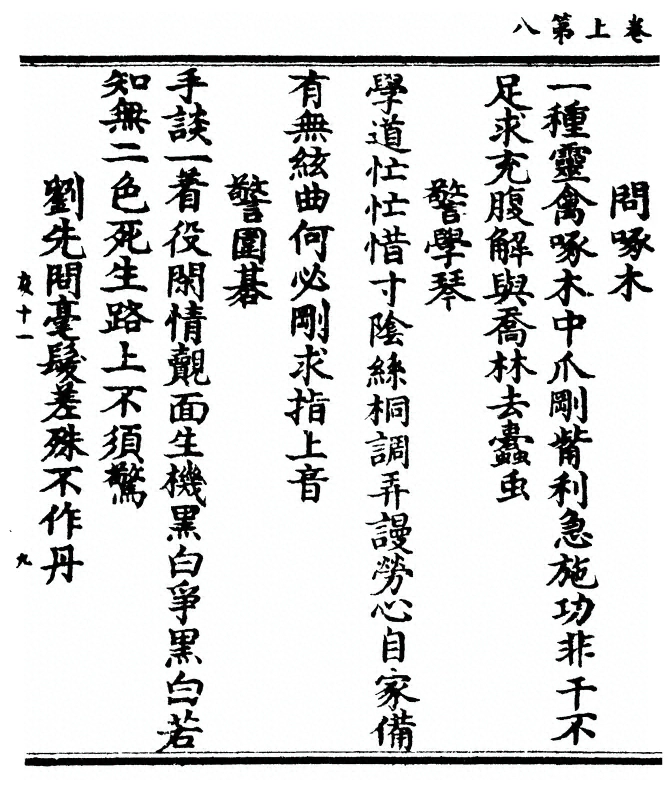 卷上第八
問啄木
一種靈禽啄木中爪剛觜利急施功非干不
足求充腹解與喬林去蠹虫
警學琴
學道忙忙惜寸陰絲桐調弄謾勞心自家備
有無絃曲何必剛求指上音
警圍碁
手談一着役閑情覿面生機黑白爭黑白若
知無二色死生路上不須驚
劉先問毫髮差殊不作丹
友十一
九